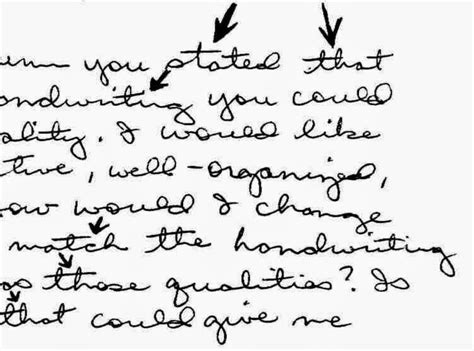 you stated that
handwriting you could
ality. I would like
tive, well-organized,
ow would I change
match the handwriting
as those qualities? Is
that could give me